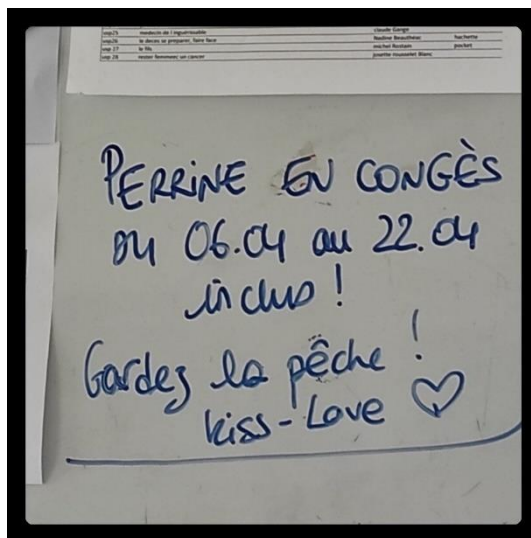 vsp25 medecin de l'inguérissable claude Gange
vsp26 le deces se preparer, faire face Nadine Beauthéac hachette
vsp 27 le fils michel Rostain pocket
vsp 28 rester femme un cancer josette rousselet Blanc
PERRINE EN CONGÈS
DU 06.04 au 22.04
inclus !
Gardez la pêche !
kiss-Love ♡